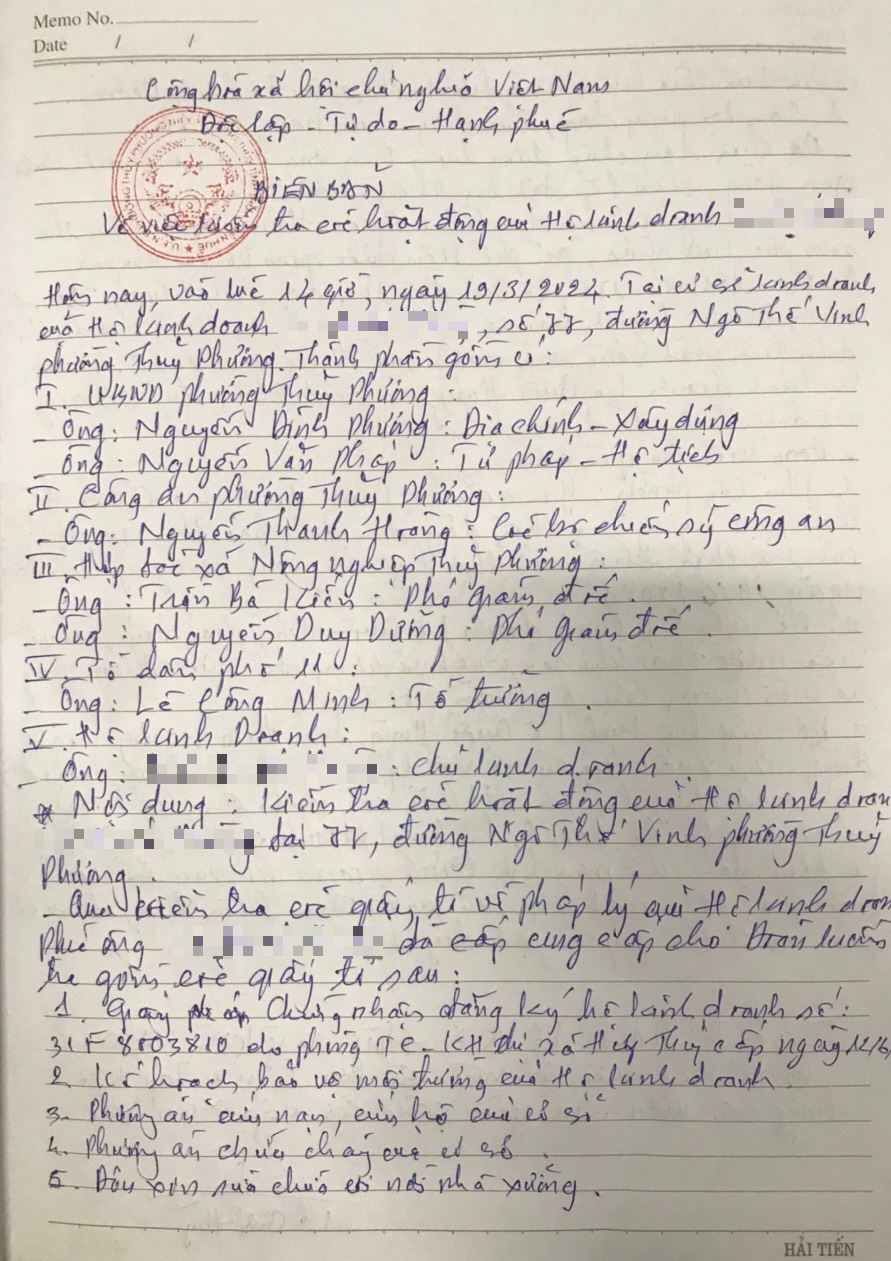 Memo No.
Date / /
Cộng hoà xã hội chủ nghĩa Việt Nam
Độc lập - Tự do - Hạnh phúc
BIÊN BẢN
Về việc kiểm tra các hoạt động của Hộ kinh doanh
Hôm nay, vào lúc 14 giờ, ngày 19/3/2024. Tại cơ sở kinh doanh
của Hộ kinh doanh , số 77, đường Ngô Thế Vinh
phường Thuỷ Phương. Thành phần gồm có:
I. UBND phường Thuỷ Phương:
- Ông: Nguyễn Đình Phương: Địa chính - Xây dựng
- Ông: Nguyễn Văn Pháp : Tư pháp - Hộ tịch
II. Công an phường Thuỷ Phương:
- Ông: Nguyễn Thanh Hoàng: Cán bộ chiến sỹ công an
III. Hợp tác xã Nông nghiệp Thuỷ Phương:
- Ông : Trần Bá Kiến : Phó giám đốc.
- Ông : Nguyễn Duy Dưỡng : Phó giám đốc.
IV. Tổ dân phố 11 :
- Ông: Lê Công Minh : Tổ trưởng .
V. Hộ kinh Doanh:
- Ông: : chủ kinh doanh.
* Nội dung : Kiểm tra các hoạt động của Hộ kinh doan
tại 77, đường Ngô Thế Vinh phường Thuỷ
Phương .
- Qua kiểm tra các giấy tờ về pháp lý của Hộ kinh doan
ông đã cấp cung cấp cho Đoàn kiểm
tra gồm các giấy tờ sau:
1. Giấy Chứng nhận đăng ký hộ kinh doanh số:
31F8003810 do phòng TC-KH thị xã Hương Thuỷ cấp ngày 12/6
2. Kế hoạch bảo vệ môi trường của Hộ kinh doanh.
3. Phương án cứu nạn, cứu hộ của cơ sở
4. Phương án chữa cháy của cơ sở .
5. Đơn xin sửa chữa cơi nới nhà xưởng.
HẢI TIẾN